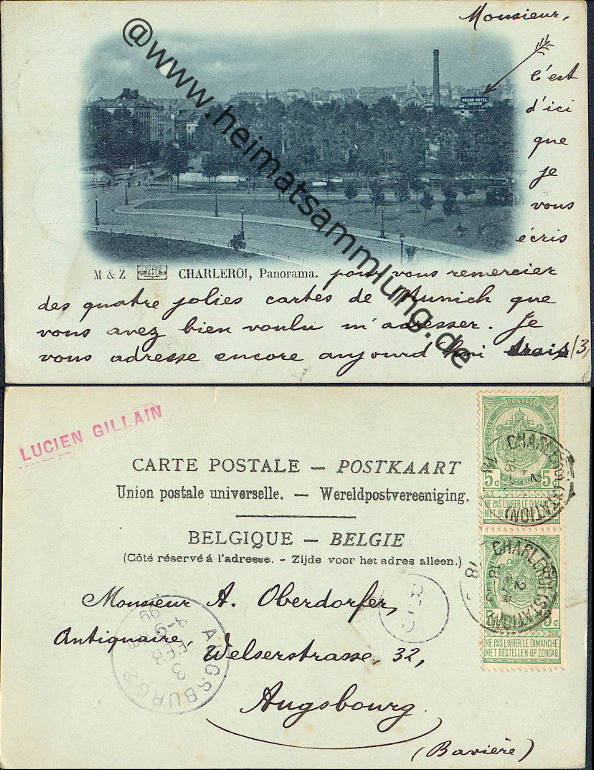 Monsieur,
c'est
d'ici
que
je
vous
écris
GRAND HOTEL
M & Z CHARLEROI, Panorama. pour vous remercier
des quatre jolies cartes de Munich que
vous avez bien voulu m'adresser. Je
vous adresse encore aujourd'hui trois (3)
@www.heimatsammlung.de
LUCIEN GILLAIN
CARTE POSTALE — POSTKAART
Union postale universelle. — Wereldpostvereeniging.
BELGIQUE — BELGIE
(Côté réservé à l'adresse. - Zijde voor het adres alleen.)
Monsieur A. Oberdorfer,
Antiquaire,
Welserstrasse 32,
Augsbourg.
(Bavière)
5c 5c
NE PAS LIVRER LE DIMANCHE
NIET BESTELLEN OP ZONDAG
CHARLEROI (STATION)
5c
NE PAS LIVRER LE DIMANCHE
NIET BESTELLEN OP ZONDAG
CHARLEROI (STATION)
AUGSBURG 2
3 FEB